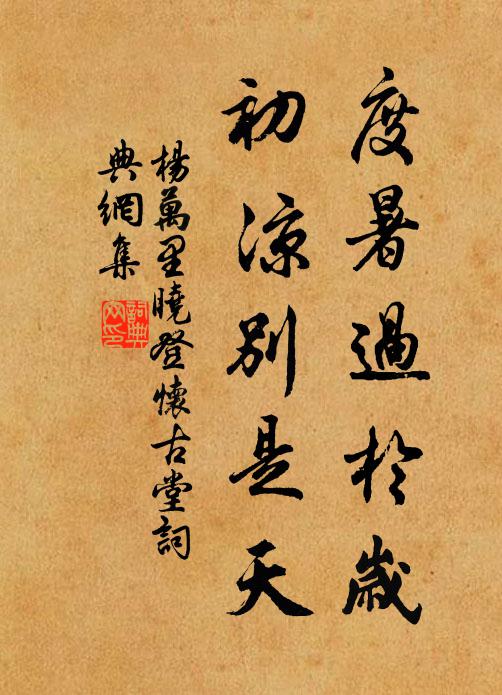 度暑過於歲
初涼別是天
楊萬里曉登懷古堂詞
典網集
詞典
网印